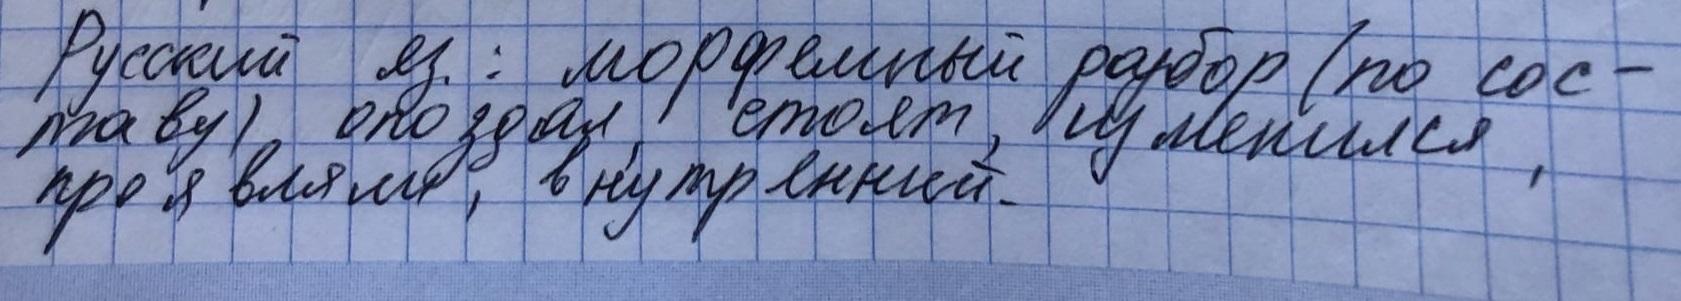 Русский яз.: морфемный разбор (по сос-
таву) опоздал, стоят, изменился,
проявляли, внутренний.